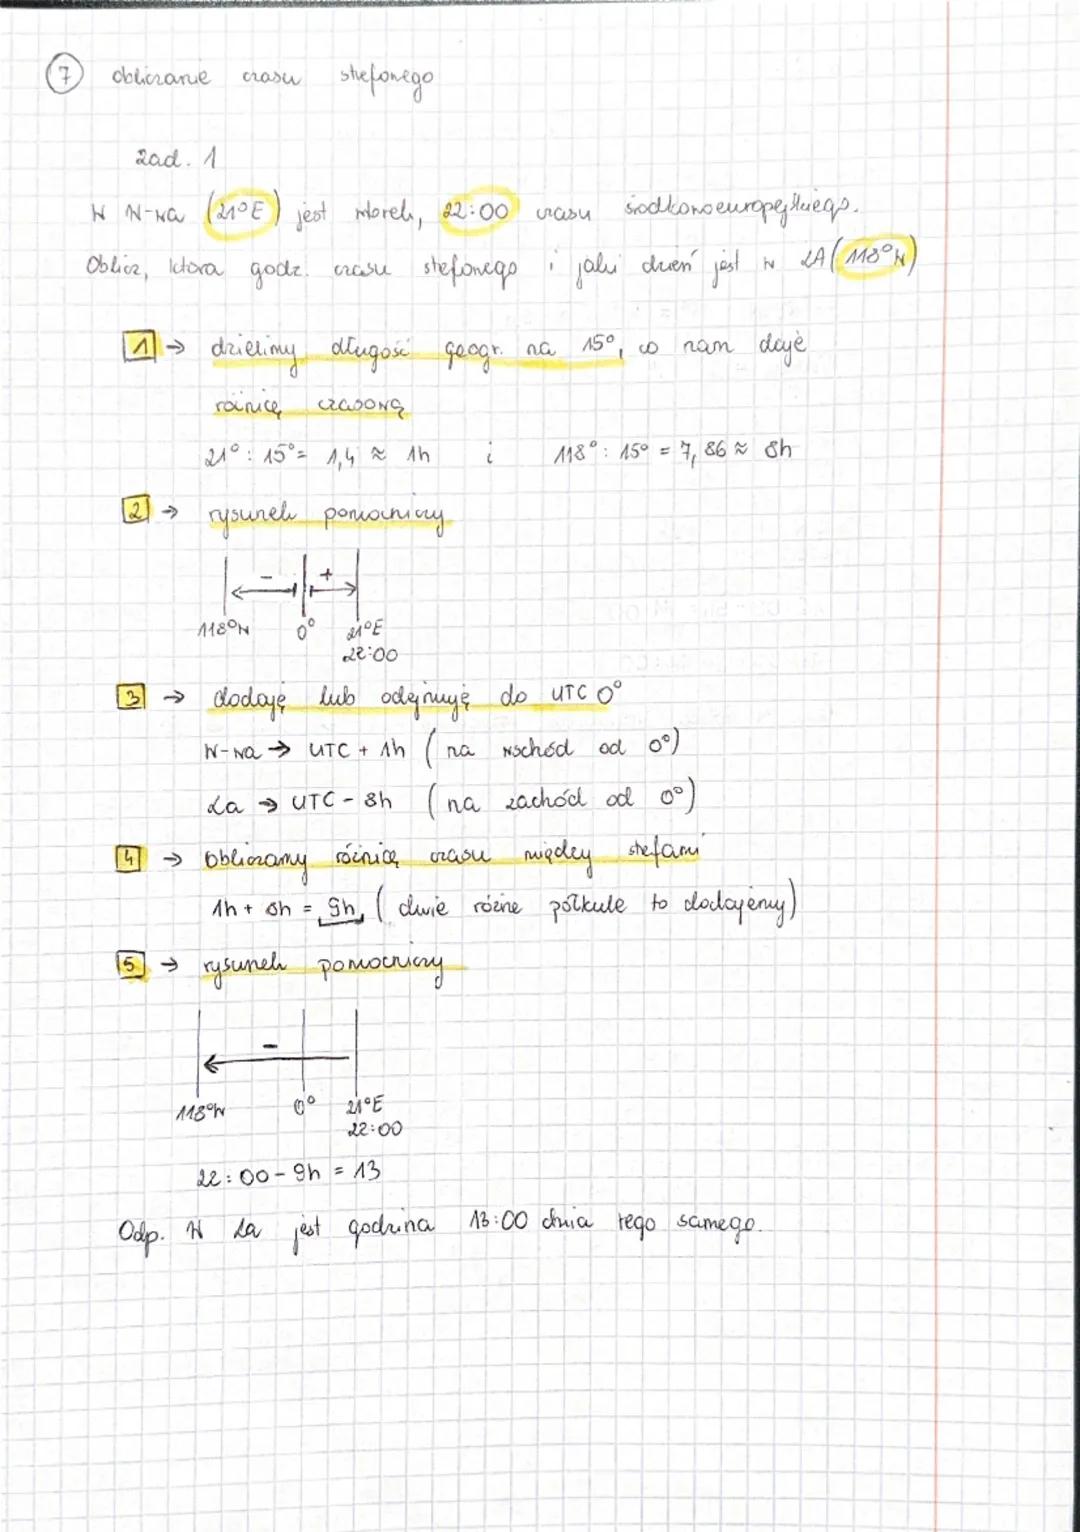 7 obliczanie czasu strefowego
zad. 1
W W-wa (21°E) jest wtorek, 22:00 czasu środkowoeuropejskiego.
Oblicz, która godz. czasu strefowego i jaki dzień jest w LA (118°W)
1 → dzielimy długość geogr. na 15°, co nam daje
różnicę czasową
21° : 15° = 1,4 ≈ 1h i 118° : 15° = 7,86 ≈ 8h
2 → rysunek pomocniczy
- +
118°W 0° 21°E
22:00
3 → dodaję lub odejmuję do UTC 0°
W-wa → UTC + 1h (na wschód od 0°)
La → UTC - 8h (na zachód od 0°)
4 → obliczamy różnicę czasu między strefami
1h + 8h = 9h, (dwie różne półkule to dodajemy)
5 → rysunek pomocniczy
-
118°W 0° 21°E
22:00
22:00 - 9h = 13
Odp. W La jest godzina 13:00 dnia tego samego.